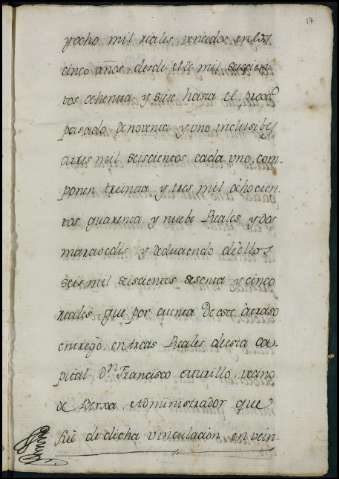 17
y ocho mil reales vencidos en los
cinco años desde el de mil setecien-
tos ochenta y siete hasta el proxº
pasado de noventa y uno inclusibes
a tres mil seiscientos cada uno, com-
ponen treinta y tres mil ochocien-
tos quarenta y nuebe Reales y dos
maravedis y deduciendo de ellos
seis mil seiscientos sesenta y cinco
reales que por quenta de este atraso
entregó en Arcas Reales de esta Ca-
pital Dn Francisco Murillo vecino
de administrador que
fue de dicha vinculacion en vein